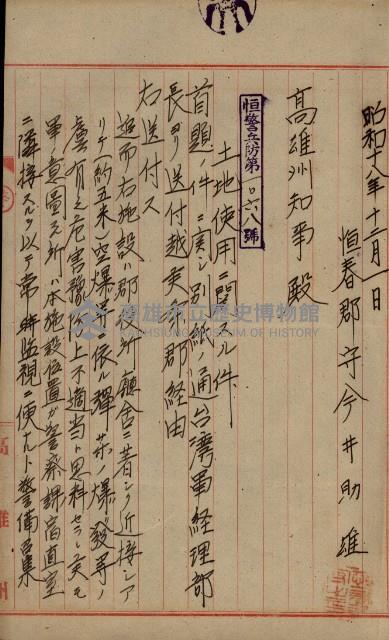 昭和十八年十二月一日
恒春郡守今井助雄
高雄州知事殿
恒警兵防第一〇六八號
土地使用ニ関スル件
首題ノ件ニ実シ別紙ノ通台湾軍経理部
長ヨリ送付越シ郡経由
右送付ス
追而右施設ハ郡役所廳舎ニ著シク近接シア
リテ(約五米)空爆ニ依ル彈ノ爆發等ノ
虞有之危害豫防上不適当ト思料セラレ
軍ノ意図スル所ハ本施設位置ガ警察課宿直室
ニ隣接スルヲ以テ常時監視ニ便ナルト警備召集
高雄市立歴史博物館
KAOHSIUNG MUSEUM OF HISTORY
高雄州